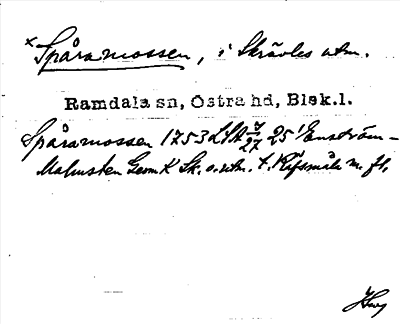 × Spåramossen, i Skrävles utm.
Ramdala sn, Östra hd, Blek.l.
Spåramossen 1753 LSA 7/27 25 1/ Enström-
Malmsten Geom K Sk. o. utm. t. Räfsmåla m. fl.